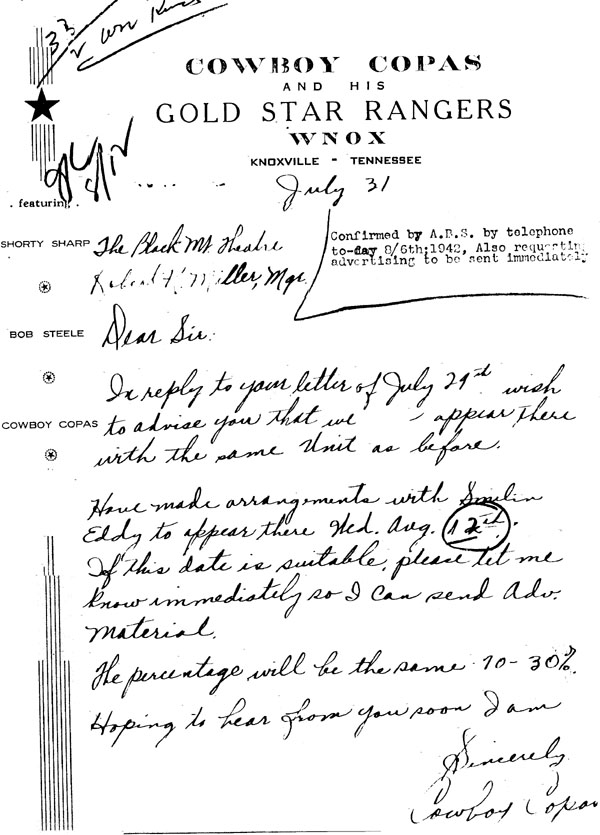 33
COWBOY COPAS
AND HIS
GOLD STAR RANGERS
WNOX
KNOXVILLE - TENNESSEE
8/12
July 31
. featuring .
SHORTY SHARP
BOB STEELE
COWBOY COPAS
Confirmed by A.B.S. by telephone
to-day 8/6th;1942, Also requesting
advertising to be sent immediately
The Black Mt. Theatre
Robert H. Miller, Mgr.
Dear Sir:
In reply to your letter of July 29th wish
to advise you that we appear there
with the same Unit as before.
Have made arrangements with Smilin
Eddy to appear there Wed. Aug. 12th.
If this date is suitable, please let me
know immediately so I can send Adv.
Material.
The percentage will be the same 70-30%.
Hoping to hear from you soon I am
Sincerely
Cowboy Copas